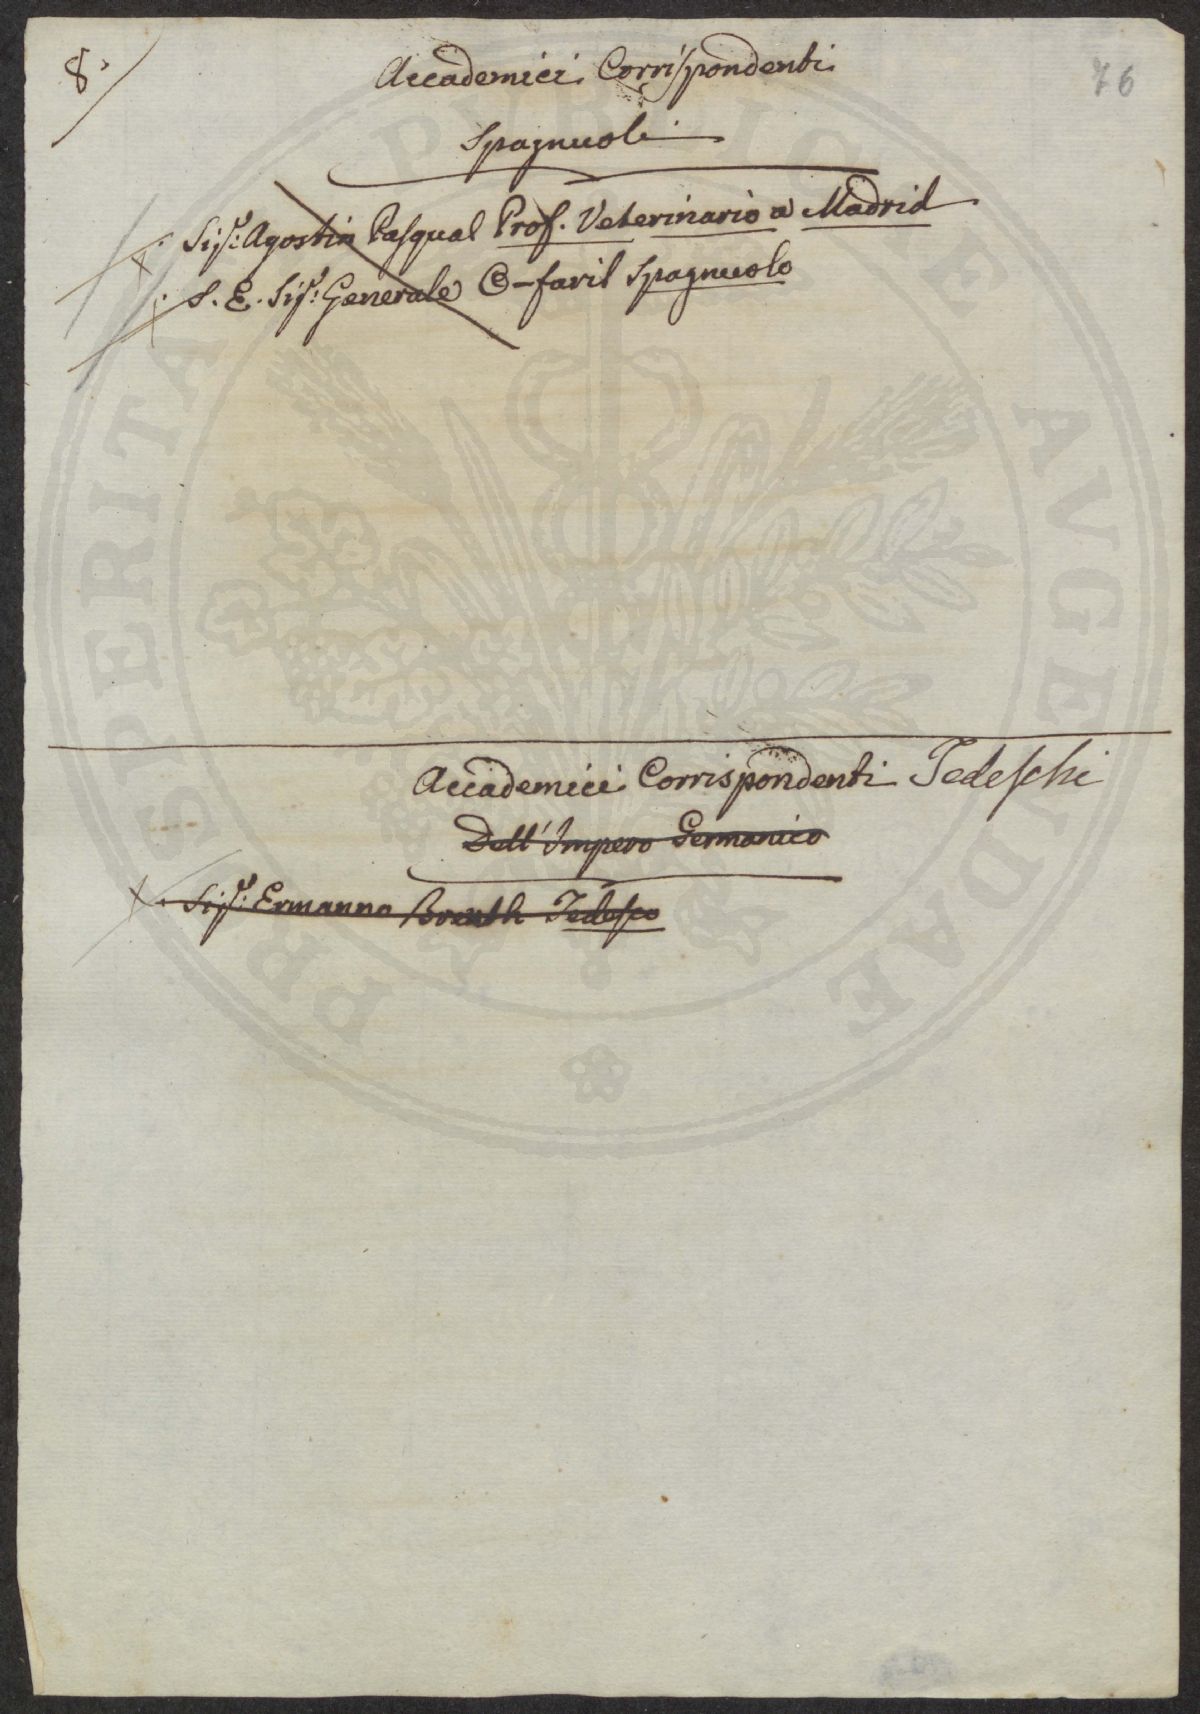 8.
76
Accademici Corrispondenti
Spagnuoli
Sigr: Agostin Pasqual Prof. Veterinario a Madrid
S. E. Sigr: Generale O-faril Spagnuolo
Accademici Corrispondenti Tedeschi
Dell'Impero Germanico
Sigr: Ermanno Tedesco
PROSPERITATI PVBLICAE AVGENDAE